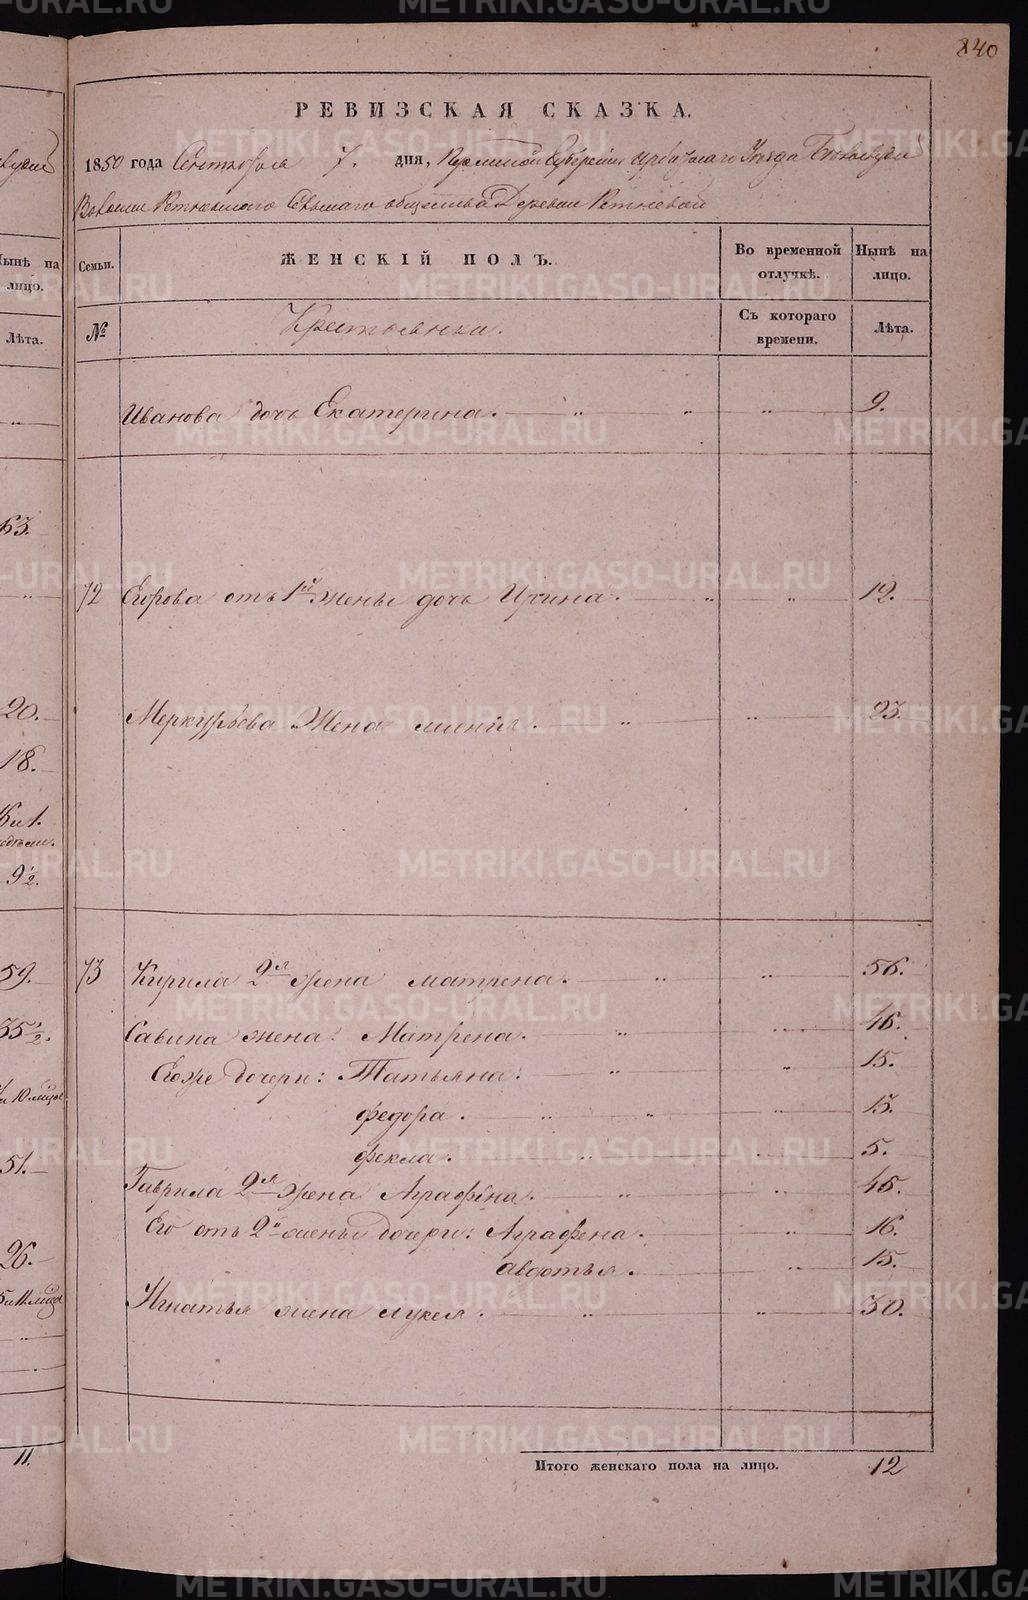 840
РЕВИЗСКАЯ СКАЗКА.
1850 года Сентября 7. дня, Пермской Губернии Ирбитскаго Уезда
Волости Ретневскаго Сельскаго общества Деревни Ретневой
Семьи.
ЖЕНСКІЙ ПОЛЪ.
Во временной отлучкѣ.
Нынѣ на лицо.
№
Крестьянки.
Съ котораго времени.
Лѣта.
Иванова дочь Екатерина. 9.
72 Егорова отъ 1й жены дочь Ирина. 12.
Меркурьева Жена 23.
73 Кирила 2я жена матрена. 56.
Савина жена: Матрена. 46.
Егоже дочери: Татьяна. 15.
федора. 13.
фекла. 5.
Гаврила 2я жена Аграфена. 45.
Его отъ 2й жены дочери: Аграфена. 16.
авдотья. 15.
Игнатья жена лукея. 30.
Итого женскаго пола на лицо. 12
Нынѣ на лицо.
Лѣта.
63.
20.
18.
9½.
59.
35½.
51.
26.
11.
METRIKI.GASO-URAL.RU